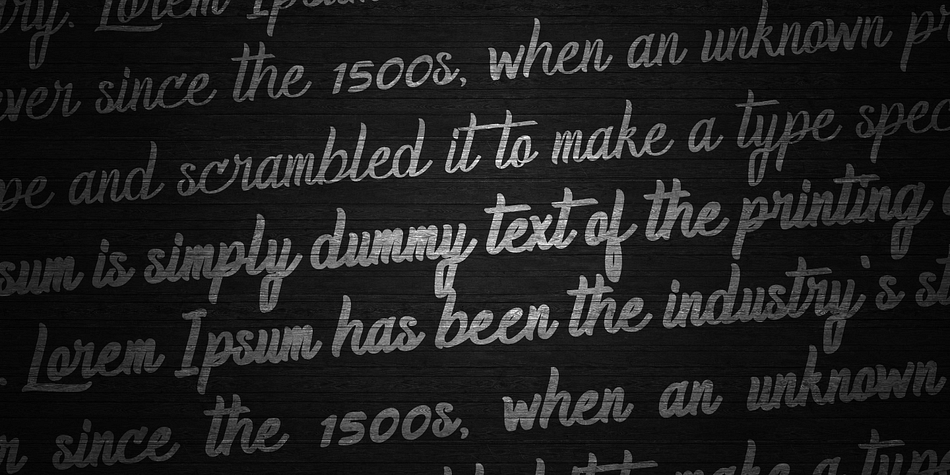 try. Lorem Ipsum
ever since the 1500s, when an unknown pr
pe and scrambled it to make a type spec
sum is simply dummy text of the printing
. Lorem Ipsum has been the industry's st
n since the 1500s, when an unknown
it to make a type